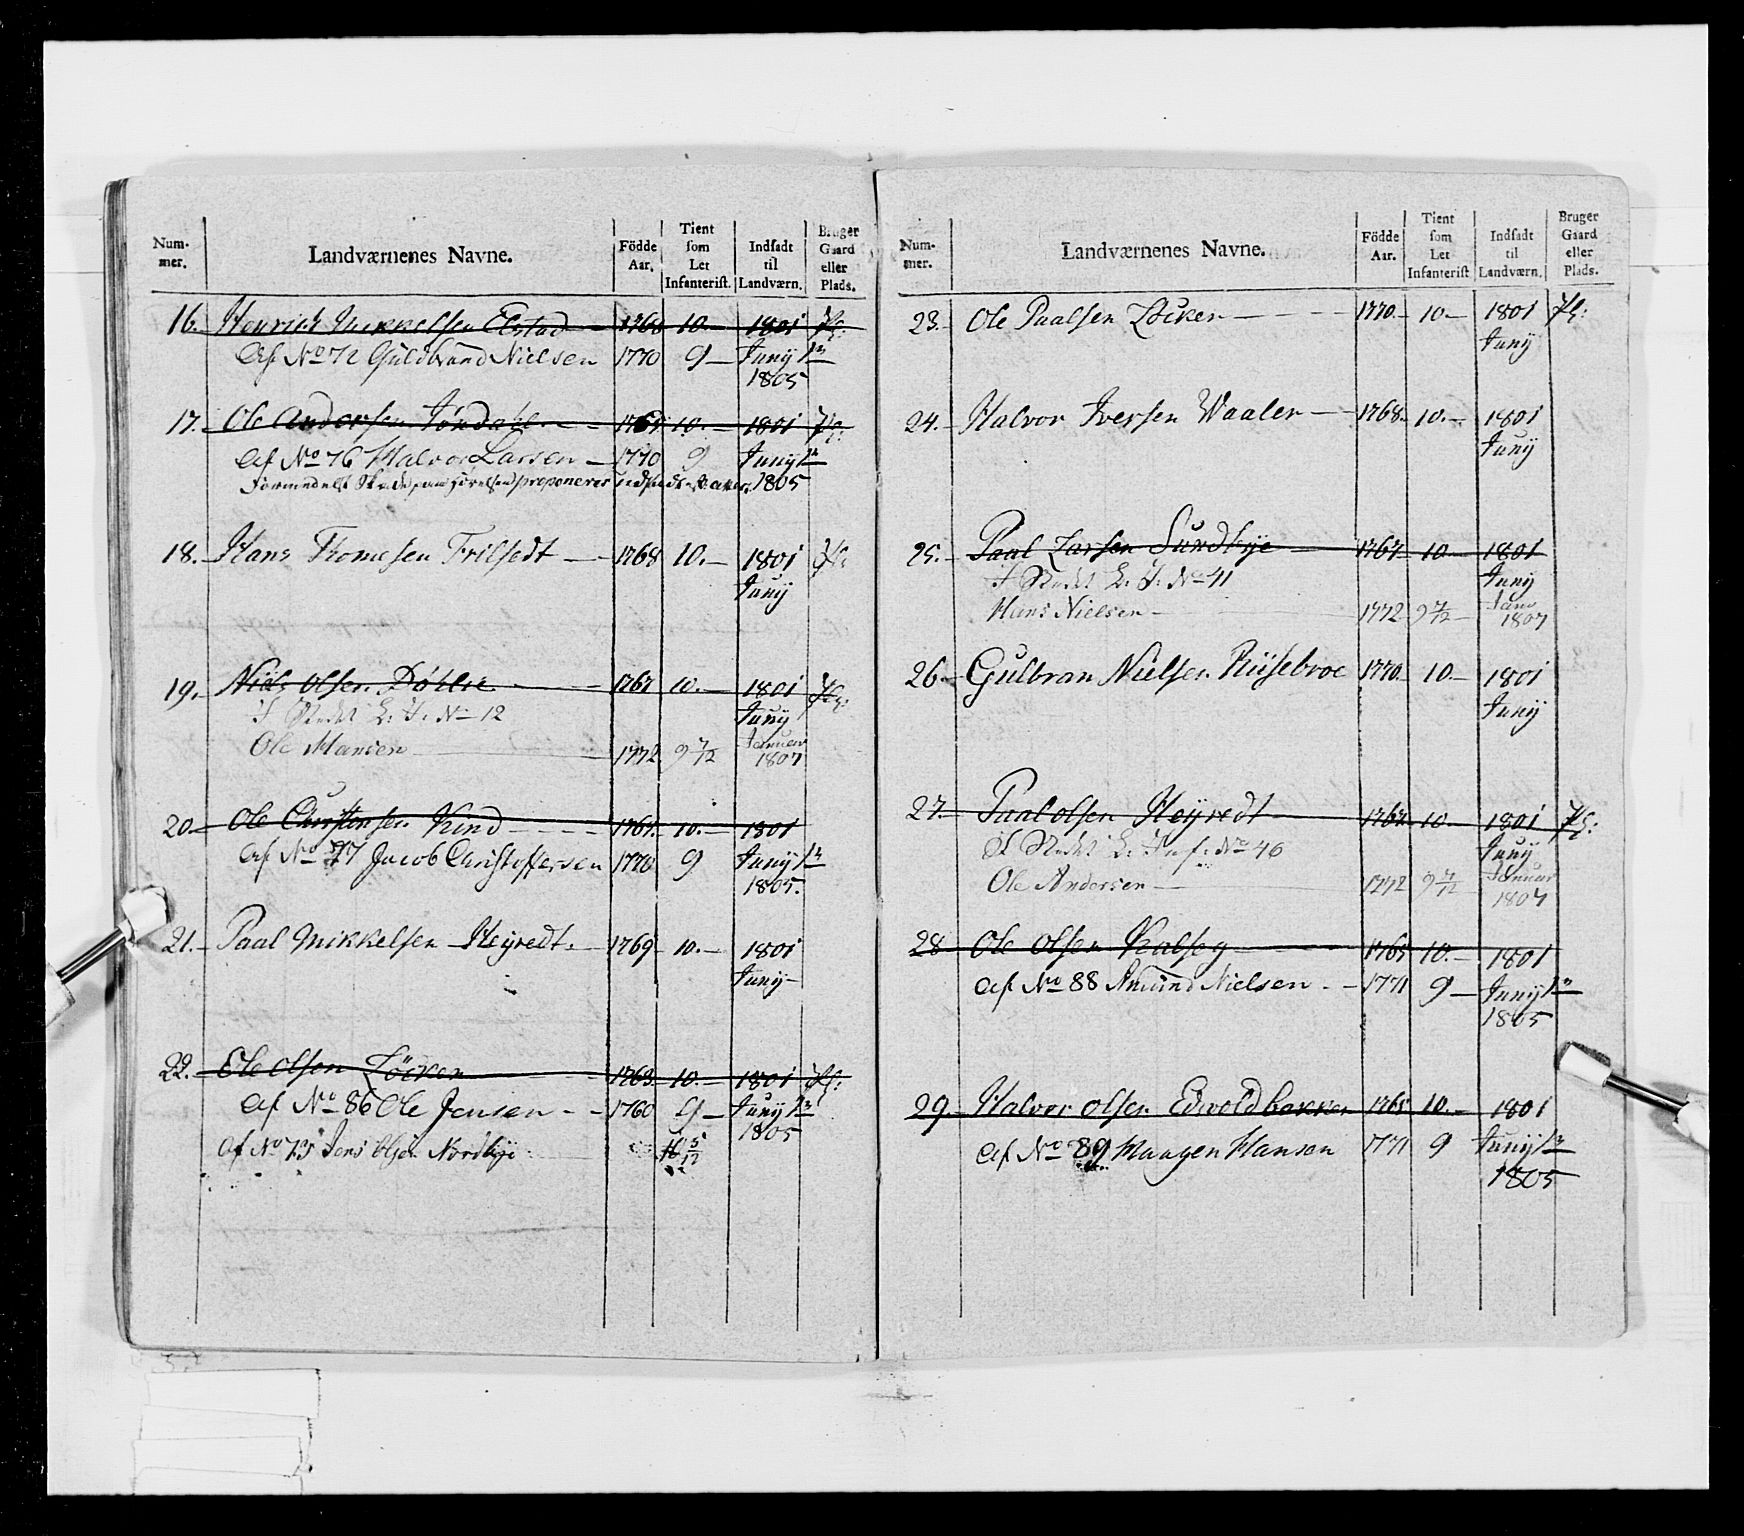 Num- mer. Landværnenes Navne. Födde Aar. Tient som Let Infanterist. Indsadt til Landværn. Bruger Gaard eller Plads.
16. Henrich Mikkelsen 1768 10. 1801 Pl:
Af No 72 Guldbrand Nielsen 1770 9 Junÿ
1805
17. Ole Andersen 10. 1801 Pl:
Af No 76 Halvor Larsen 1770 9 Junÿ
1805
18. Hans Thomesen 1768 10. 1801 Pl:
Junÿ
19. Niels Olsen 1767 10. 1801 Pl:
I Stedet L: I: No 12 Junÿ
Ole Hansen 1772 9 7/12 Januar 1807
20 Ole Christensen Kind 1767 10. 1801
Af No 77 Jacob Christoffersen 1770 9 Junÿ
1805.
21. Paal Mikkelsen Heyredt 1769 10. 1801
Junÿ
22. Ole Olsen Löcken 1763 10. 1801 Pl:
Af No 86 Ole Jensen 1760 9 Junÿ
1805
Af No 73 Jens Olsen Nordbye
Num- mer. Landværnenes Navne. Födde Aar. Tient som Let Infanterist. Indsadt til Landværn. Bruger Gaard eller Plads.
23. Ole Paalsen Löcken 1770 10 1801 Pl:
Junÿ
24. Halvor Iversen Waaler 1768 10. 1801
Junÿ
25. Paal Larsen Sundbye 1767 10 1801
I Stedet L: I: No 41 Junÿ
Hans Nielsen 1772 9 7/12 Janu 1807
26. Gulbran Nielsen Riisebroe 1770 10 1801
Junÿ
27. Paal Olsen Heyredt 1767 10 1801 Pl:
I Stedet L: Inf: No 46 Junÿ
Ole Andersen 1772 9 7/12 Januar
1807
28 Ole Olsen 1765 10. 1801
Af No 88 Amund Nielsen 1771 9 Junÿ
1805
29 Halvor Olsen 1765 10. 1801
Af No 89 Haagen Hansen 1771 9 Junÿ
1805